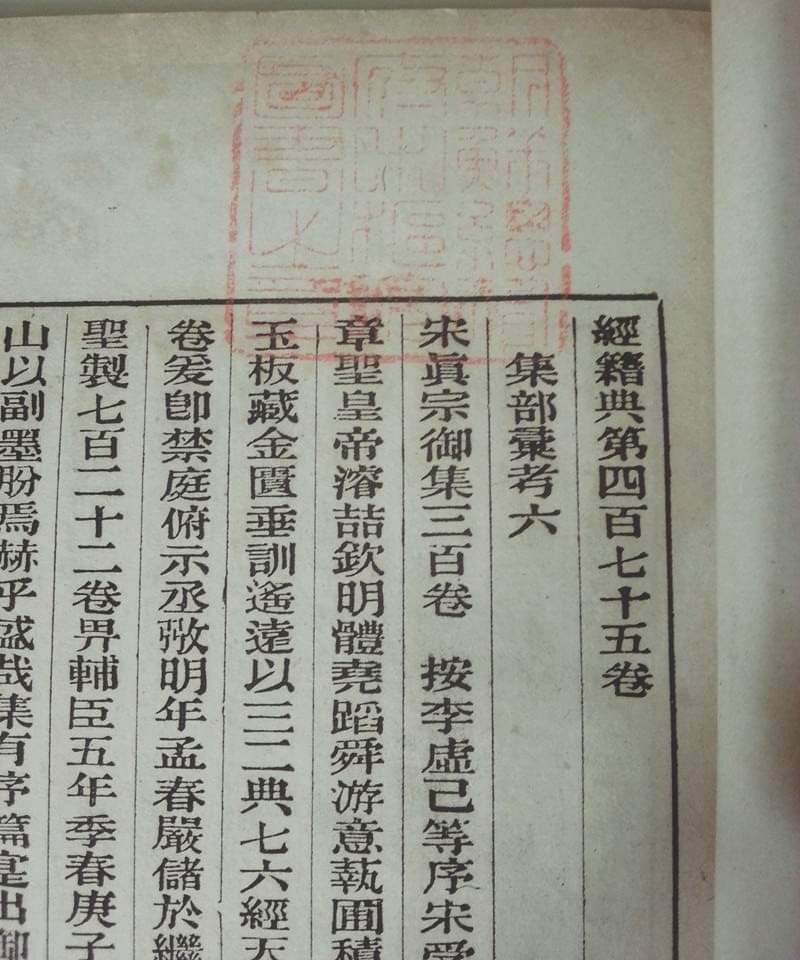 朝鮮總督
府中樞院
圖書之章
經籍典第四百七十五卷
集部彙考六
宋眞宗御集三百卷　按李虛己等序宋受
章聖皇帝濬喆欽明體堯蹈舜游意執圃積
玉板藏金匱垂訓遙遠以三二典七六經天
卷爰卽禁庭俯示丞㢸明年孟春嚴儲於繼
聖製七百二十二卷畀輔臣五年季春庚子
山以副墨肦焉赫乎盛哉集有序篇寔出御